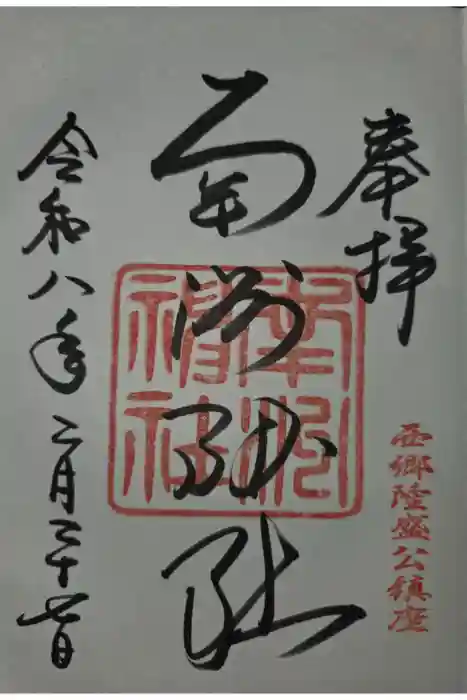 奉拝
西郷隆盛公鎮座
南洲神社
南洲
神社
令和八年二月二十七日